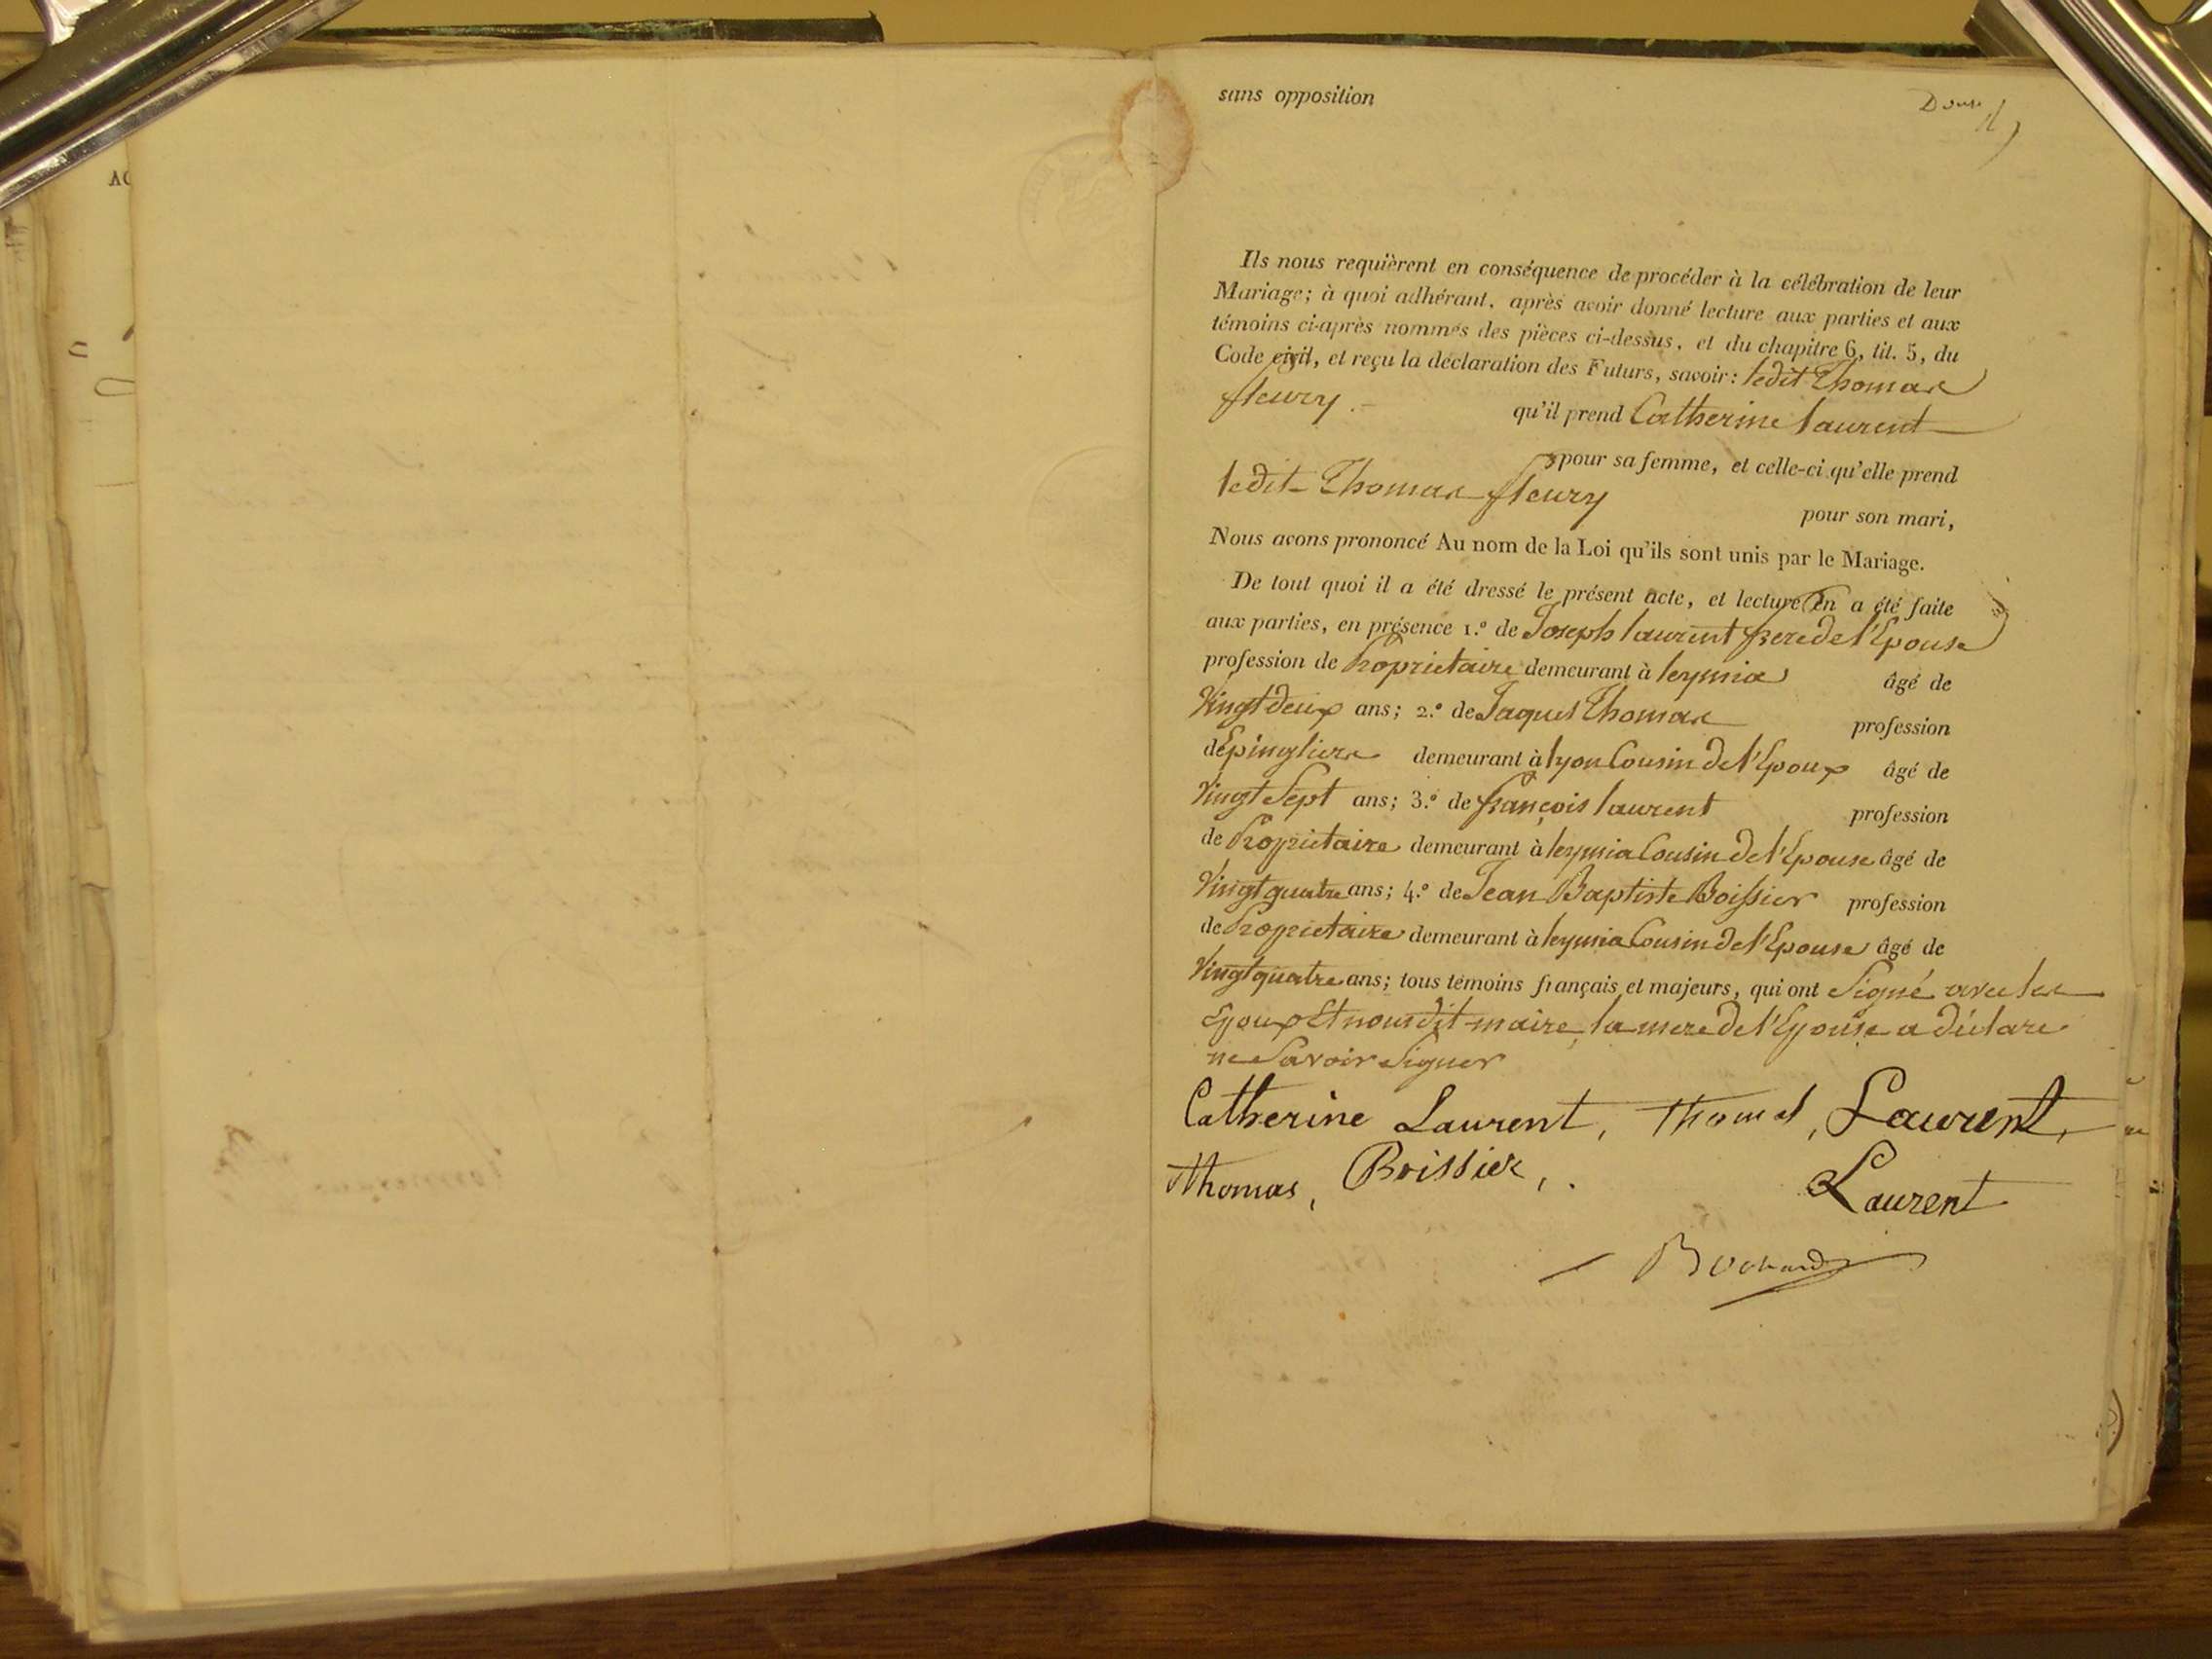 sans opposition
Ils nous requièrent en conséquence de procéder à la célébration de leur
Mariage; à quoi adhérant, après avoir donné lecture aux parties et aux
témoins ci-après nommés des pièces ci-dessus, et du chapitre 6, tit. 5, du
Code civil, et reçu la déclaration des Futurs, savoir: ledit Thomas
fleury qu'il prend Catherine laurent
pour sa femme, et celle-ci qu'elle prend
ledit Thomas fleury pour son mari,
Nous avons prononcé Au nom de la Loi qu'ils sont unis par le Mariage.
De tout quoi il a été dressé le présent acte, et lecture en a été faite
aux parties, en présence 1.º de Joseph laurent frere de l'Epouse
profession de Proprietaire demeurant à leymia âgé de
Vingt deux ans; 2.º de Jaques Thomas profession
d'Epinglier demeurant à lyon Cousin de l'Epoux âgé de
Vingt Sept ans; 3.º de françois laurent profession
de Proprietaire demeurant à leymia Cousin de l'Epouse âgé de
Vingt quatre ans; 4.º de Jean Baptiste Boissier profession
de Proprietaire demeurant à leymia Cousin de l'Epouse âgé de
Vingt quatre ans; tous témoins français et majeurs, qui ont Signé avec les
Epoux Et nous dit maire, la mere de l'Epouse a déclare
ne Savoir Signer
Catherine Laurent, Thomas, Laurent,
Thomas, Boissier, Laurent
Bochard